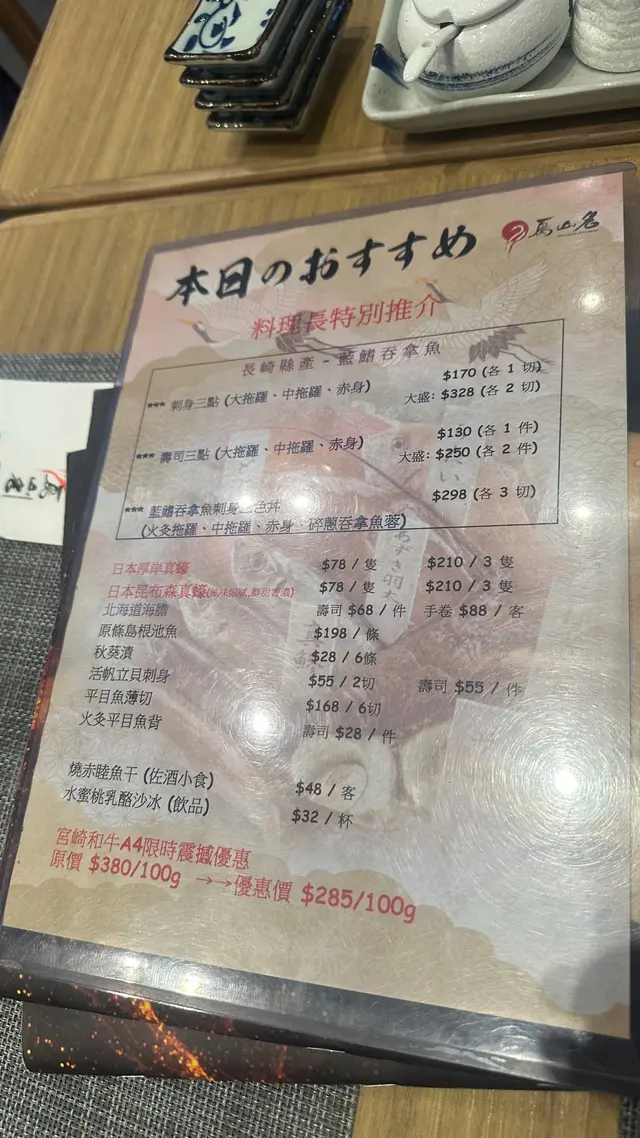 本日のおすすめ
料理長特別推介
長崎縣產 - 藍鰭吞拿魚
*** 刺身三點 (大拖羅、中拖羅、赤身) $170 (各 1 切)
大盛: $328 (各 2 切)
*** 壽司三點 (大拖羅、中拖羅、赤身) $130 (各 1 件)
大盛: $250 (各 2 件)
*** 藍鰭吞拿魚刺身三色丼 $298 (各 3 切)
(火炙拖羅、中拖羅、赤身、碎蔥吞拿魚蓉)
日本厚岸真蠔 $78 / 隻 $210 / 3 隻
日本昆布森真蠔(風味細膩,鮮甜香濃) $78 / 隻 $210 / 3 隻
北海道海膽 壽司 $68 / 件 手卷 $88 / 客
原條島根池魚 $198 / 條
秋葵漬 $28 / 6條
活帆立貝刺身 $55 / 2切 壽司 $55 / 件
平目魚薄切 $168 / 6切
火炙平目魚背 壽司 $28 / 件
燒赤睦魚干 (佐酒小食) $48 / 客
水蜜桃乳酪沙冰 (飲品) $32 / 杯
宮崎和牛A4限時震撼優惠
原價 $380/100g →→優惠價 $285/100g